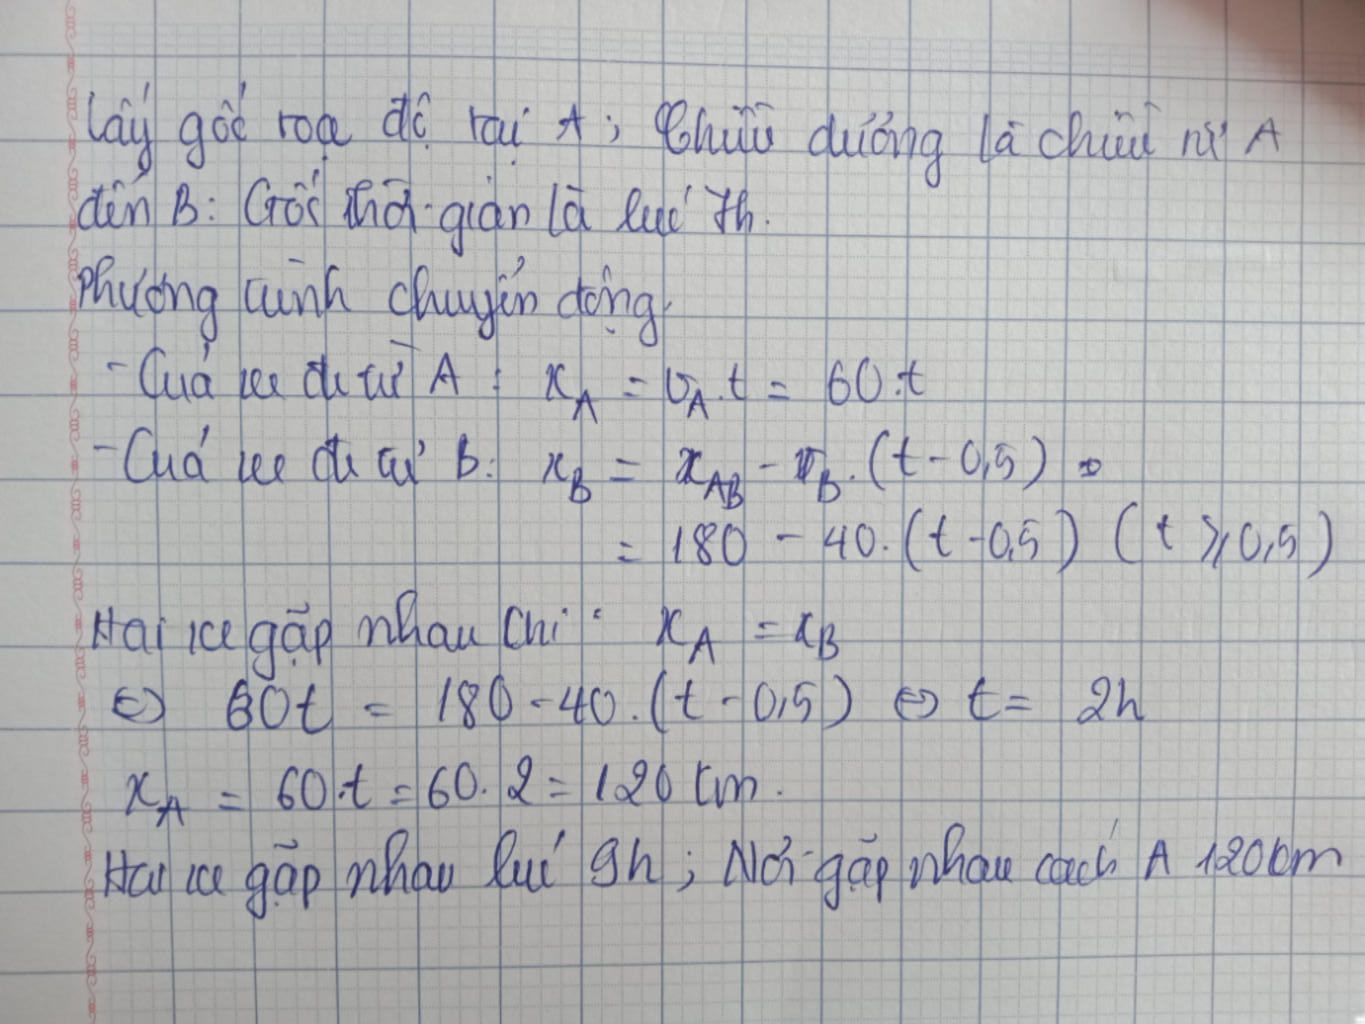 Lấy gốc toạ độ tại A; Chiều dương là chiều từ A
đến B: Gốc thời gian là lúc 7h.
Phương trình chuyển động
- Của xe đi từ A : x_A = v_A.t = 60.t
- Của xe đi từ B: x_B = x_AB - v_B.(t-0,5) =
= 180 - 40.(t-0,5) (t ⩾ 0,5)
Hai xe gặp nhau Chi : x_A = x_B
⇔ 60t = 180-40.(t-0,5) ⇔ t = 2h
x_A = 60.t = 60.2 = 120 km.
Hai xe gặp nhau lúc 9h; Nơi gặp nhau cách A 120km